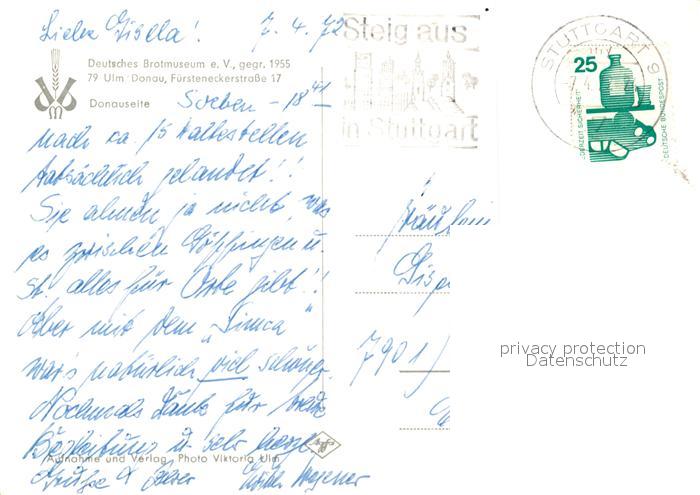 Liebe Gisela! 7.4.72
Deutsches Brotmuseum e. V., gegr. 1955
79 Ulm/Donau, Fürsteneckerstraße 17
Donauseite
Soeben – 18 41
nach ca. 15 Haltestellen
tatsächlich gelandet!!
Sie ahnen ja nicht, was
es zwischen Göppingen u.
St. alles für Orte gibt!!
Aber mit dem „Simca"
war's natürlich viel schöner.
Nochmals Dank für
Begleitung u. sehr herzl.
Grüße
Aufnahme und Verlag Photo Viktoria Ulm
Steig aus
in Stuttgart
STUTTGART 9
25
JEDERZEIT SICHERHEIT
DEUTSCHE BUNDESPOST
Fräulein
7901
privacy protection
Datenschutz